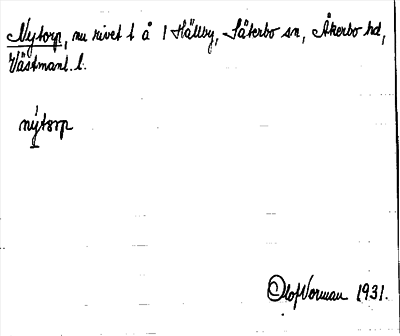 Nytorp, nu rivet t å 1 Hällby, Säterbo sn, Åkerbo hd,
Västmanl. l.
nytorp
Olof Norman 1931.